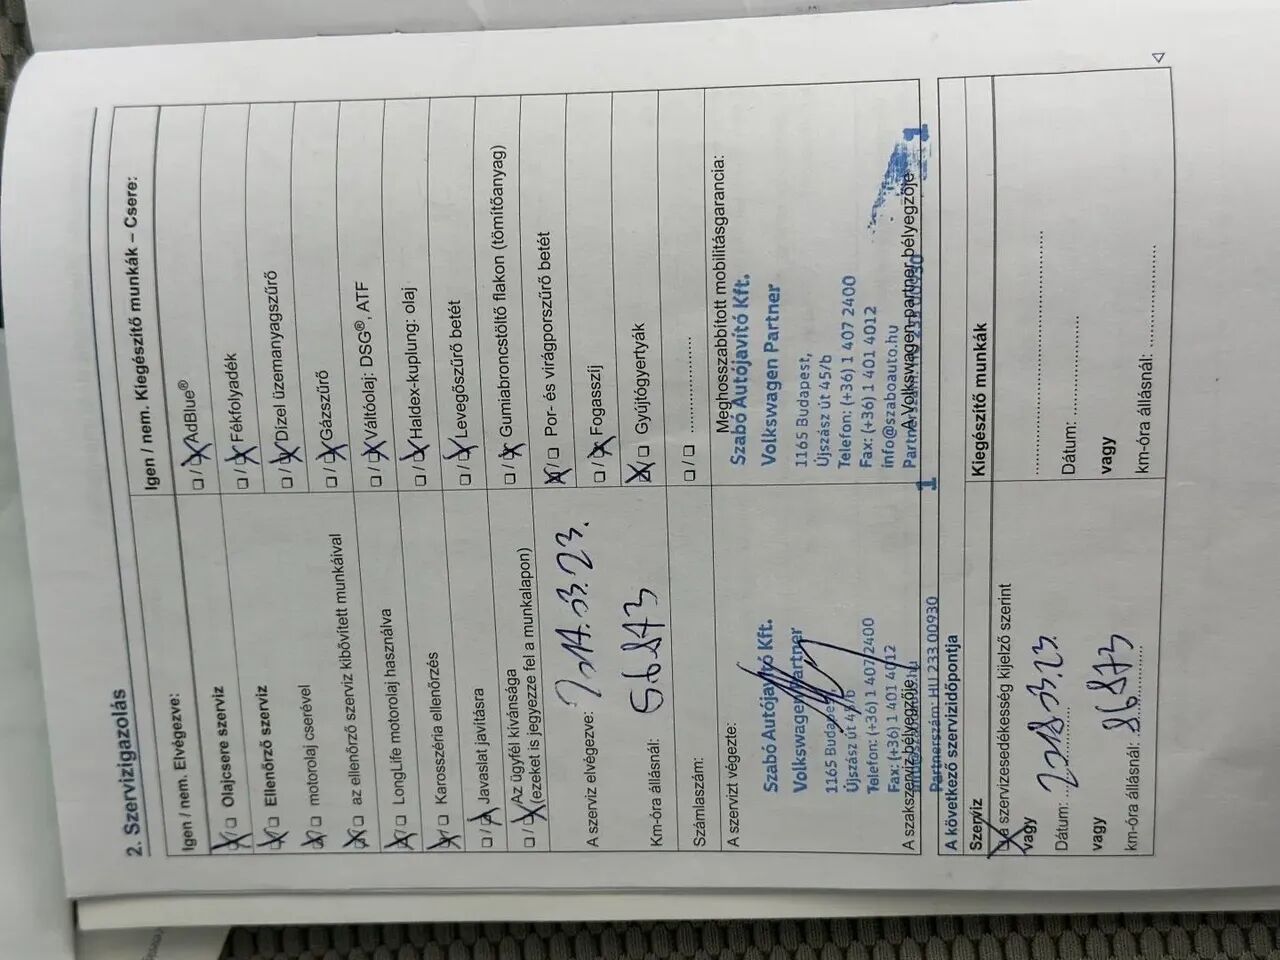 2. Szervizigazolás
Igen / nem. Elvégezve:
☒/☐ Olajcsere szerviz
☒/☐ Ellenőrző szerviz
☒/☐ motorolaj cserével
☒/☐ az ellenőrző szerviz kibővített munkáival
☒/☐ LongLife motorolaj használva
☒/☐ Karosszéria ellenőrzés
☐/☒ Javaslat javításra
☐/☒ Az ügyfél kívánsága
(ezeket is jegyezze fel a munkalapon)
A szerviz elvégezve:
Km-óra állásnál: 56873
Számlaszám:
A szervizt végezte:
Szabó Autójavító Kft.
Volkswagen Partner
1165 Budapest,
Újszász út 45/b
Telefon: (+36) 1 407 2400
Fax: (+36) 1 401 4012
A szakszerviz bélyegzője
Partnerszám: HU 233 00930
Igen / nem. Kiegészítő munkák – Csere:
☐/☒ AdBlue®
☐/☒ Fékfolyadék
☐/☒ Dízel üzemanyagszűrő
☐/☒ Gázszűrő
☐/☒ Váltóolaj: DSG®, ATF
☐/☒ Haldex-kuplung: olaj
☐/☒ Levegőszűrő betét
☐/☒ Gumiabroncstöltő flakon (tömítőanyag)
☒/☐ Por- és virágporszűrő betét
☐/☒ Fogasszíj
☒/☐ Gyújtógyertyák
☐/☐ ....................
Meghosszabbított mobilitásgarancia:
Szabó Autójavító Kft.
Volkswagen Partner
1165 Budapest,
Újszász út 45/b
Telefon: (+36) 1 407 2400
Fax: (+36) 1 401 4012
info@szaboauto.hu
A Volkswagen-partner bélyegzője
1
1
A következő szervizidőpontja
Szerviz
☒ a szervizesedékesség kijelző szerint
vagy
Dátum:
vagy
km-óra állásnál: 86873
Kiegészítő munkák
....................
Dátum: ....................
vagy
km-óra állásnál: ....................